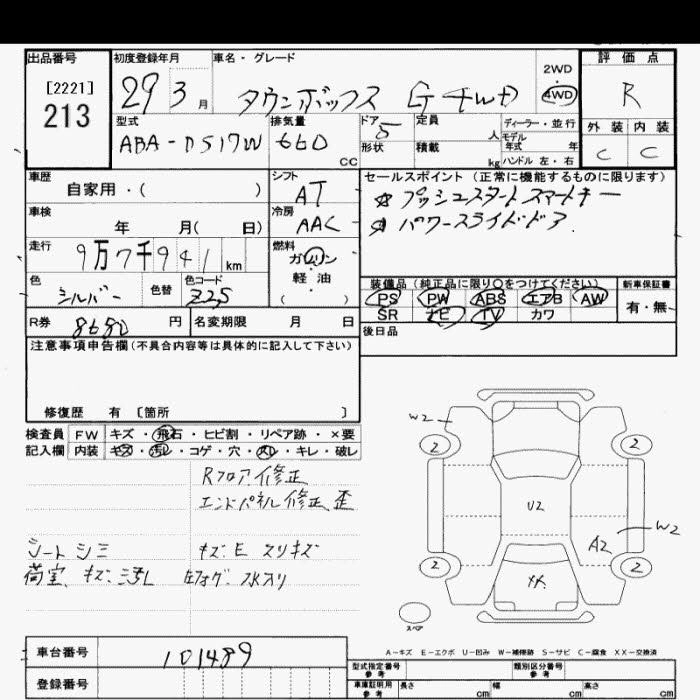 出品番号
[2221]
213
初度登録年月
29 3 月
車名・グレード
タウンボックス G 4WD
2WD
4WD
評価点
R
型式
ABA-DS17W
排気量
660 CC
ドア 5
形状
定員 人
積載 kg
ディーラー・並行
モデル年式 年
ハンドル 左・右
外装 内装
C C
車歴
自家用・( )
シフト
AT
車検
年 月( 日)
冷房
AAC
走行
9万7千941 km
燃料
ガソリン
軽・油
( )
色
シルバー
色替
色コード
Z2S
R券 8680 円
名変期限 月 日
セールスポイント(正常に機能するものに限ります)
☆ プッシュスタート スマートキー
☆ パワースライドドア
装備品(純正品に限り○をつけてください)
PS PW ABS エアB AW
SR ナビ TV カワ
新車保証書
有・無
後日品
注意事項申告欄(不具合内容等は具体的に記入して下さい)
修復歴 有 [箇所 ]
検査員 FW キズ・飛石・ヒビ割・リペア跡・×要
記入欄 内装 キズ・汚レ・コゲ・穴・スレ・キレ・破レ
Rフロア修正
エンドパネル修正 歪
シートシミ
キズE スリキズ
荷室、キズ汚レ
左フォグ 水入り
W2
2 2
U2
A2 W2
2 2
XX
スペア
A−キズ E−エクボ U−凹み W−補修跡 S−サビ C−腐食 XX−交換済
車台番号 101489
登録番号
型式指定番号 参考
類別区分番号 参考
車庫証明用 参考 長さ cm 幅 cm 高さ cm